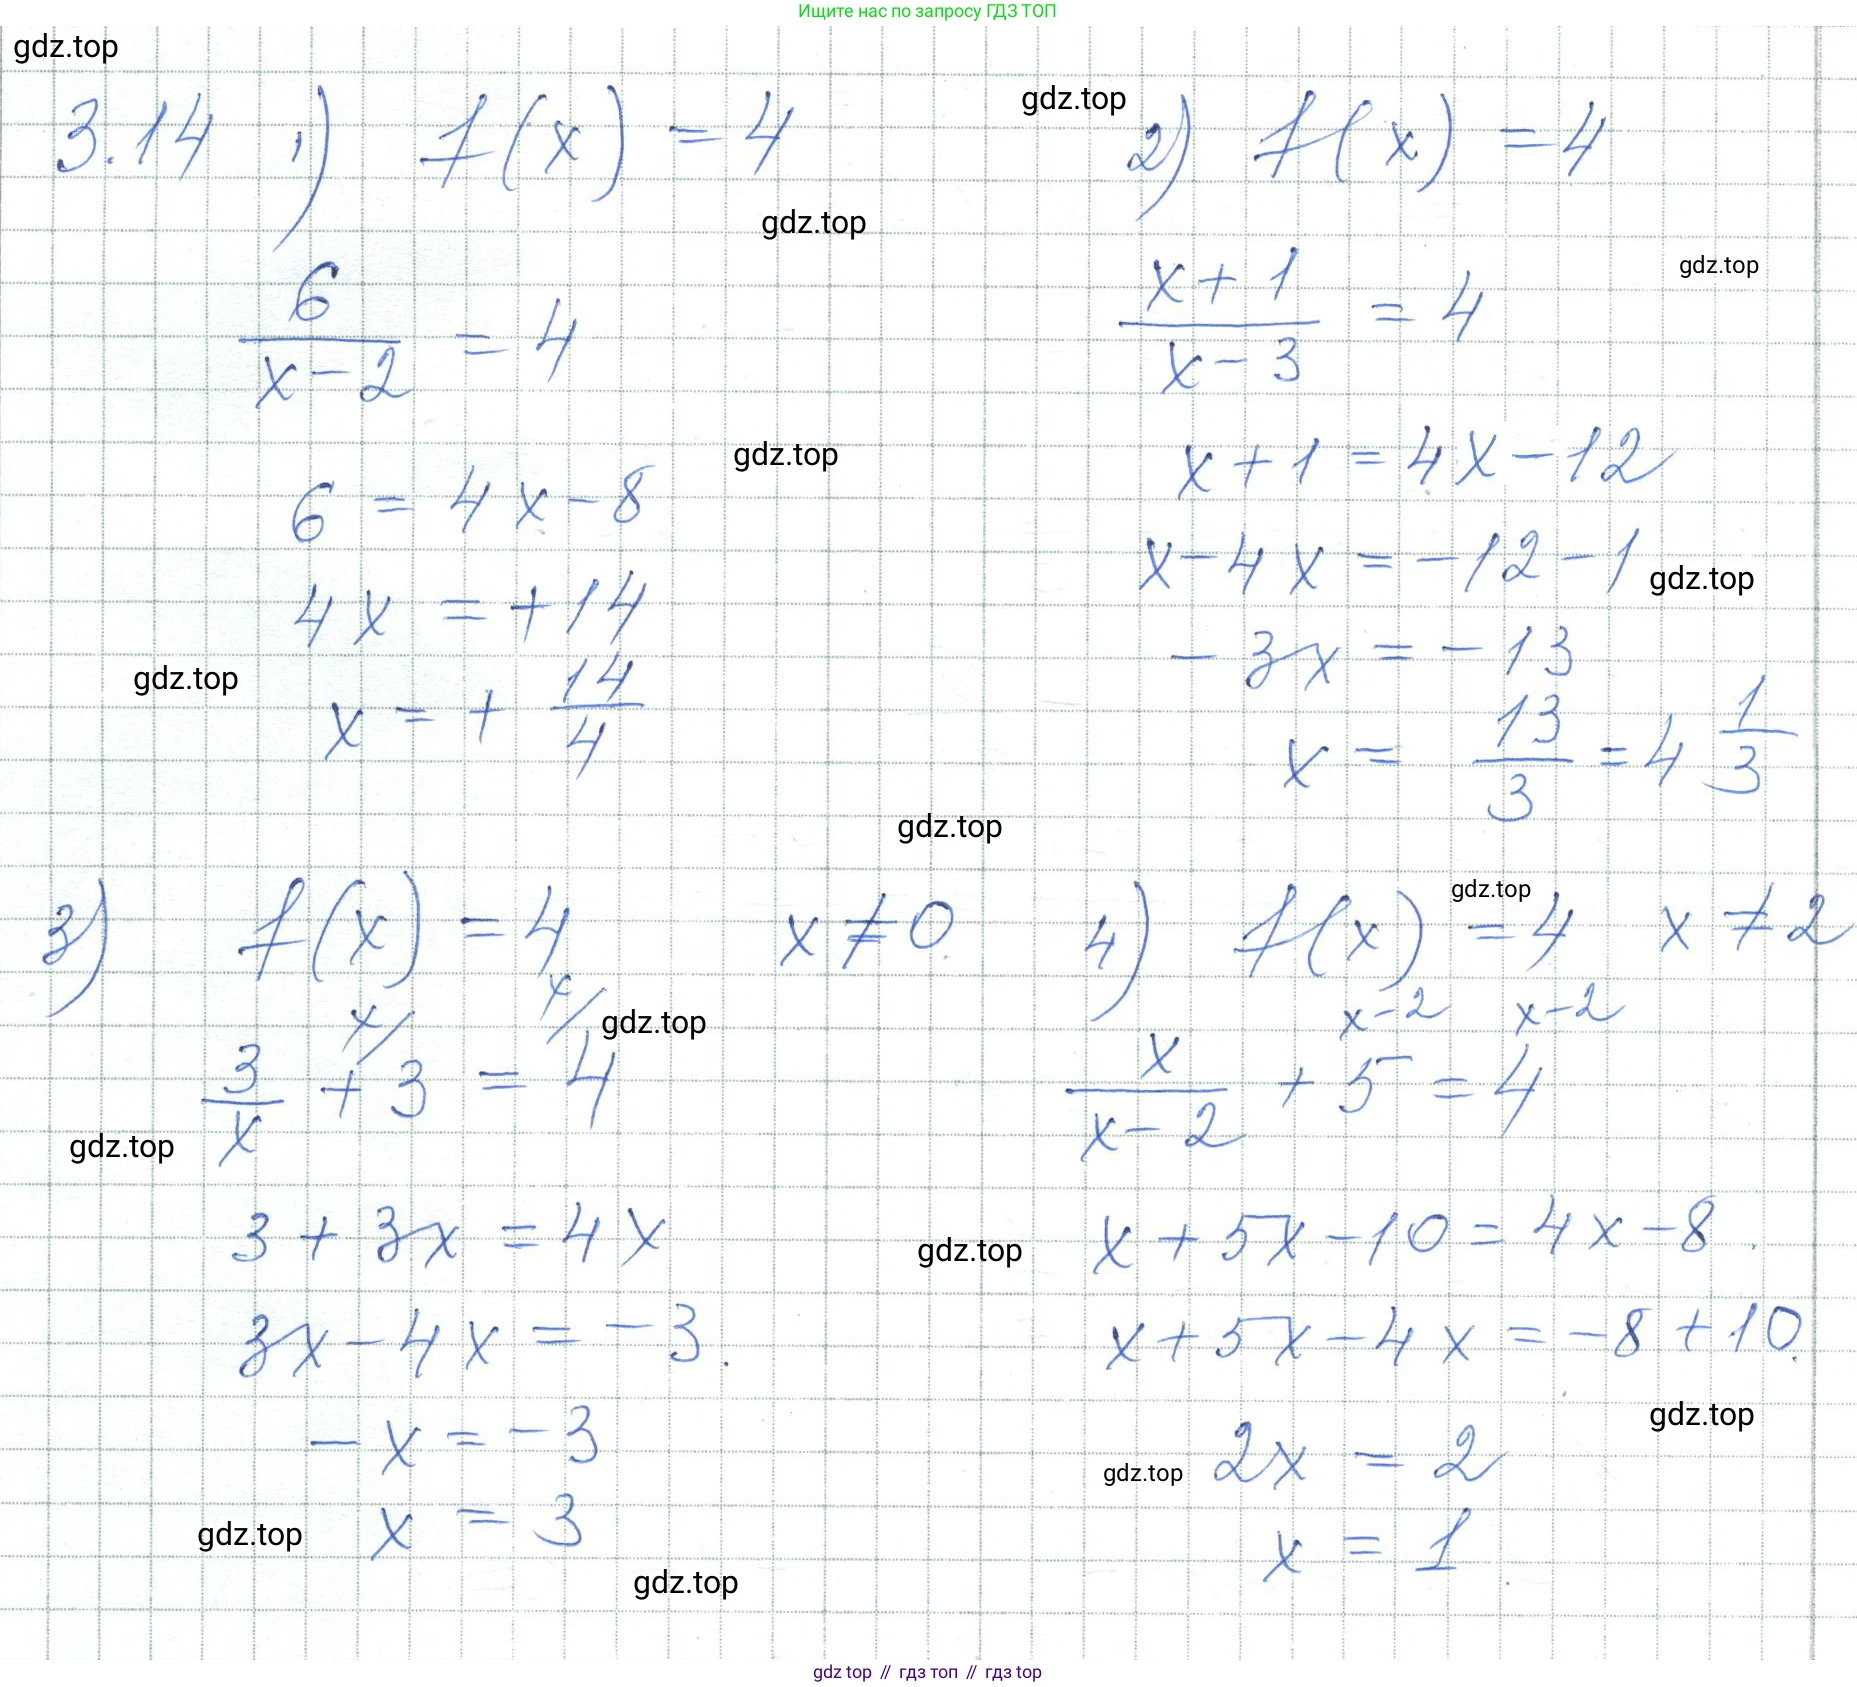 Ищите нас по запросу ГДЗ ТОП
gdz.top
3.14 1) f(x) = 4
gdz.top
2) f(x) = 4
gdz.top
gdz.top
6/(x-2) = 4
(x+1)/(x-3) = 4
gdz.top
6 = 4x-8
x+1 = 4x-12
4x = +14
x-4x = -12-1
gdz.top
gdz.top
x = + 14/4
-3x = -13
x = 13/3 = 4 1/3
gdz.top
3) f(x) = 4 x ≠ 0
gdz.top
4) f(x) = 4 x ≠ 2
x/ x/
gdz.top
x-2 x-2
3/x + 3 = 4
x/(x-2) + 5 = 4
gdz.top
3 + 3x = 4x
gdz.top
x+5x-10 = 4x-8.
3x-4x = -3.
x+5x-4x = -8+10.
gdz.top
-x = -3
gdz.top
2x = 2
x = 3
gdz.top
x = 1
gdz.top
gdz top // гдз топ // gdz top